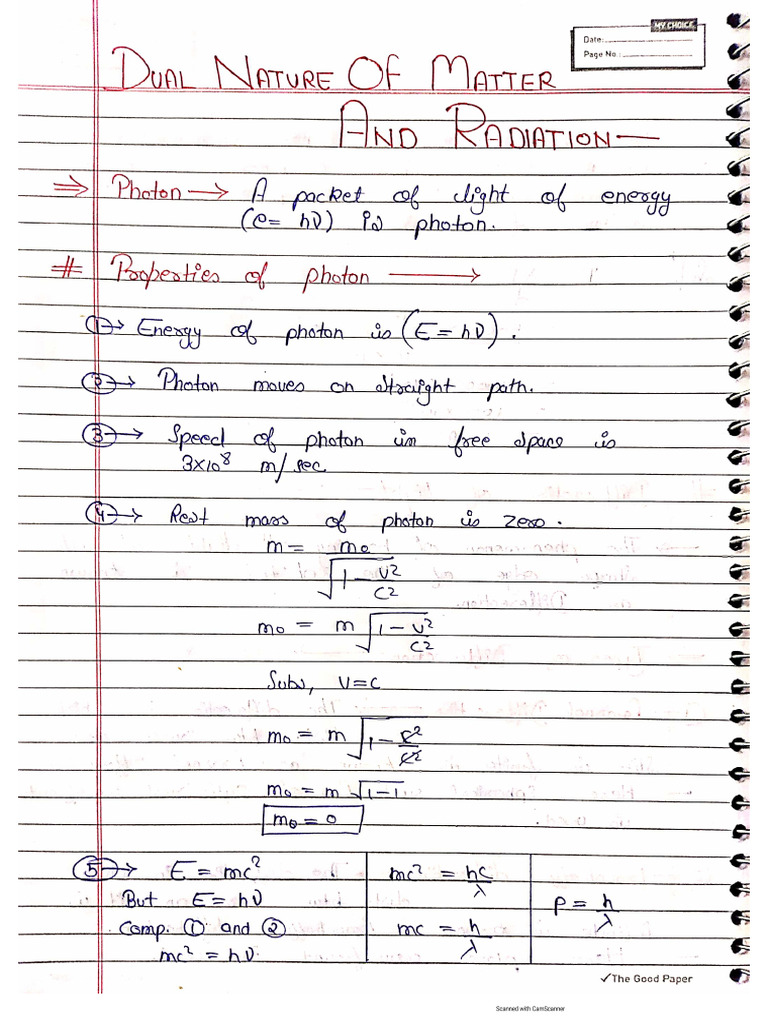 MY CHOICE
Date:
Page No :
DUAL NATURE OF MATTER
AND RADIATION—
⇒ Photon → A packet of light of energy
(e= hν) is photon.
# Properties of photon →
① → Energy of photon is (E = hν) .
② → Photon moves on straight path.
③ → Speed of photon in free space is
3×10⁸ m/sec
④ → Rest mass of photon is zero.
m = m₀ / √(1 − v²/c²)
m₀ = m √(1 − v²/c²)
Subs, v=c
m₀ = m √(1 − c²/c²)
m₀ = m √(1−1)
m₀ = 0
⑤ → E = mc²
But E = hν
Comp. ① and ②
mc² = hν
mc² = hc/λ
mc = h/λ
P = h/λ
✓The Good Paper
Scanned with CamScanner